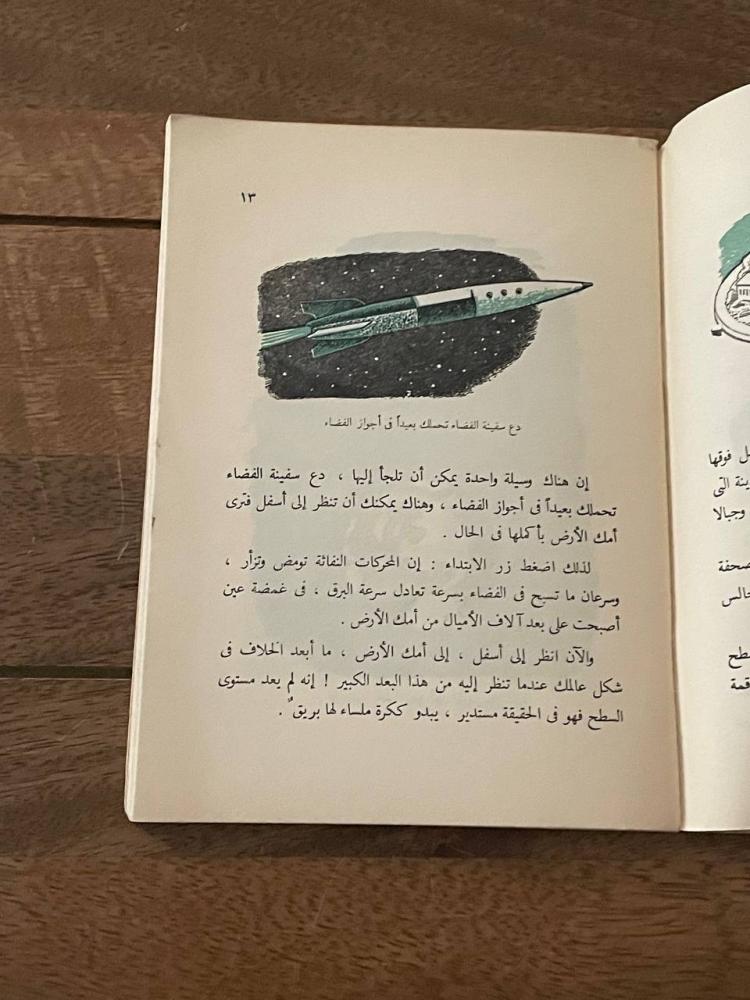 ١٣
دع سفينة الفضاء تحملك بعيداً فى أجواز الفضاء
إن هناك وسيلة واحدة يمكن أن تلجأ إليها ، دع سفينة الفضاء
تحملك بعيداً فى أجواز الفضاء ، وهناك يمكنك أن تنظر إلى أسفل فترى
أمك الأرض بأكملها فى الحال .
لذلك اضغط زر الابتداء : إن المحركات النفاثة تومض وتزأر ،
وسرعان ما تسبح فى الفضاء بسرعة تعادل سرعة البرق ، فى غمضة عين
أصبحت على بعد آلاف الأميال من أمك الأرض .
والآن انظر إلى أسفل ، إلى أمك الأرض ، ما أبعد الخلاف فى
شكل عالمك عندما تنظر إليه من هذا البعد الكبير ! إنه لم يعد مستوى
السطح فهو فى الحقيقة مستدير ، يبدو ككرة ملساء لها بريق .
فوقها
التى
وجبالا